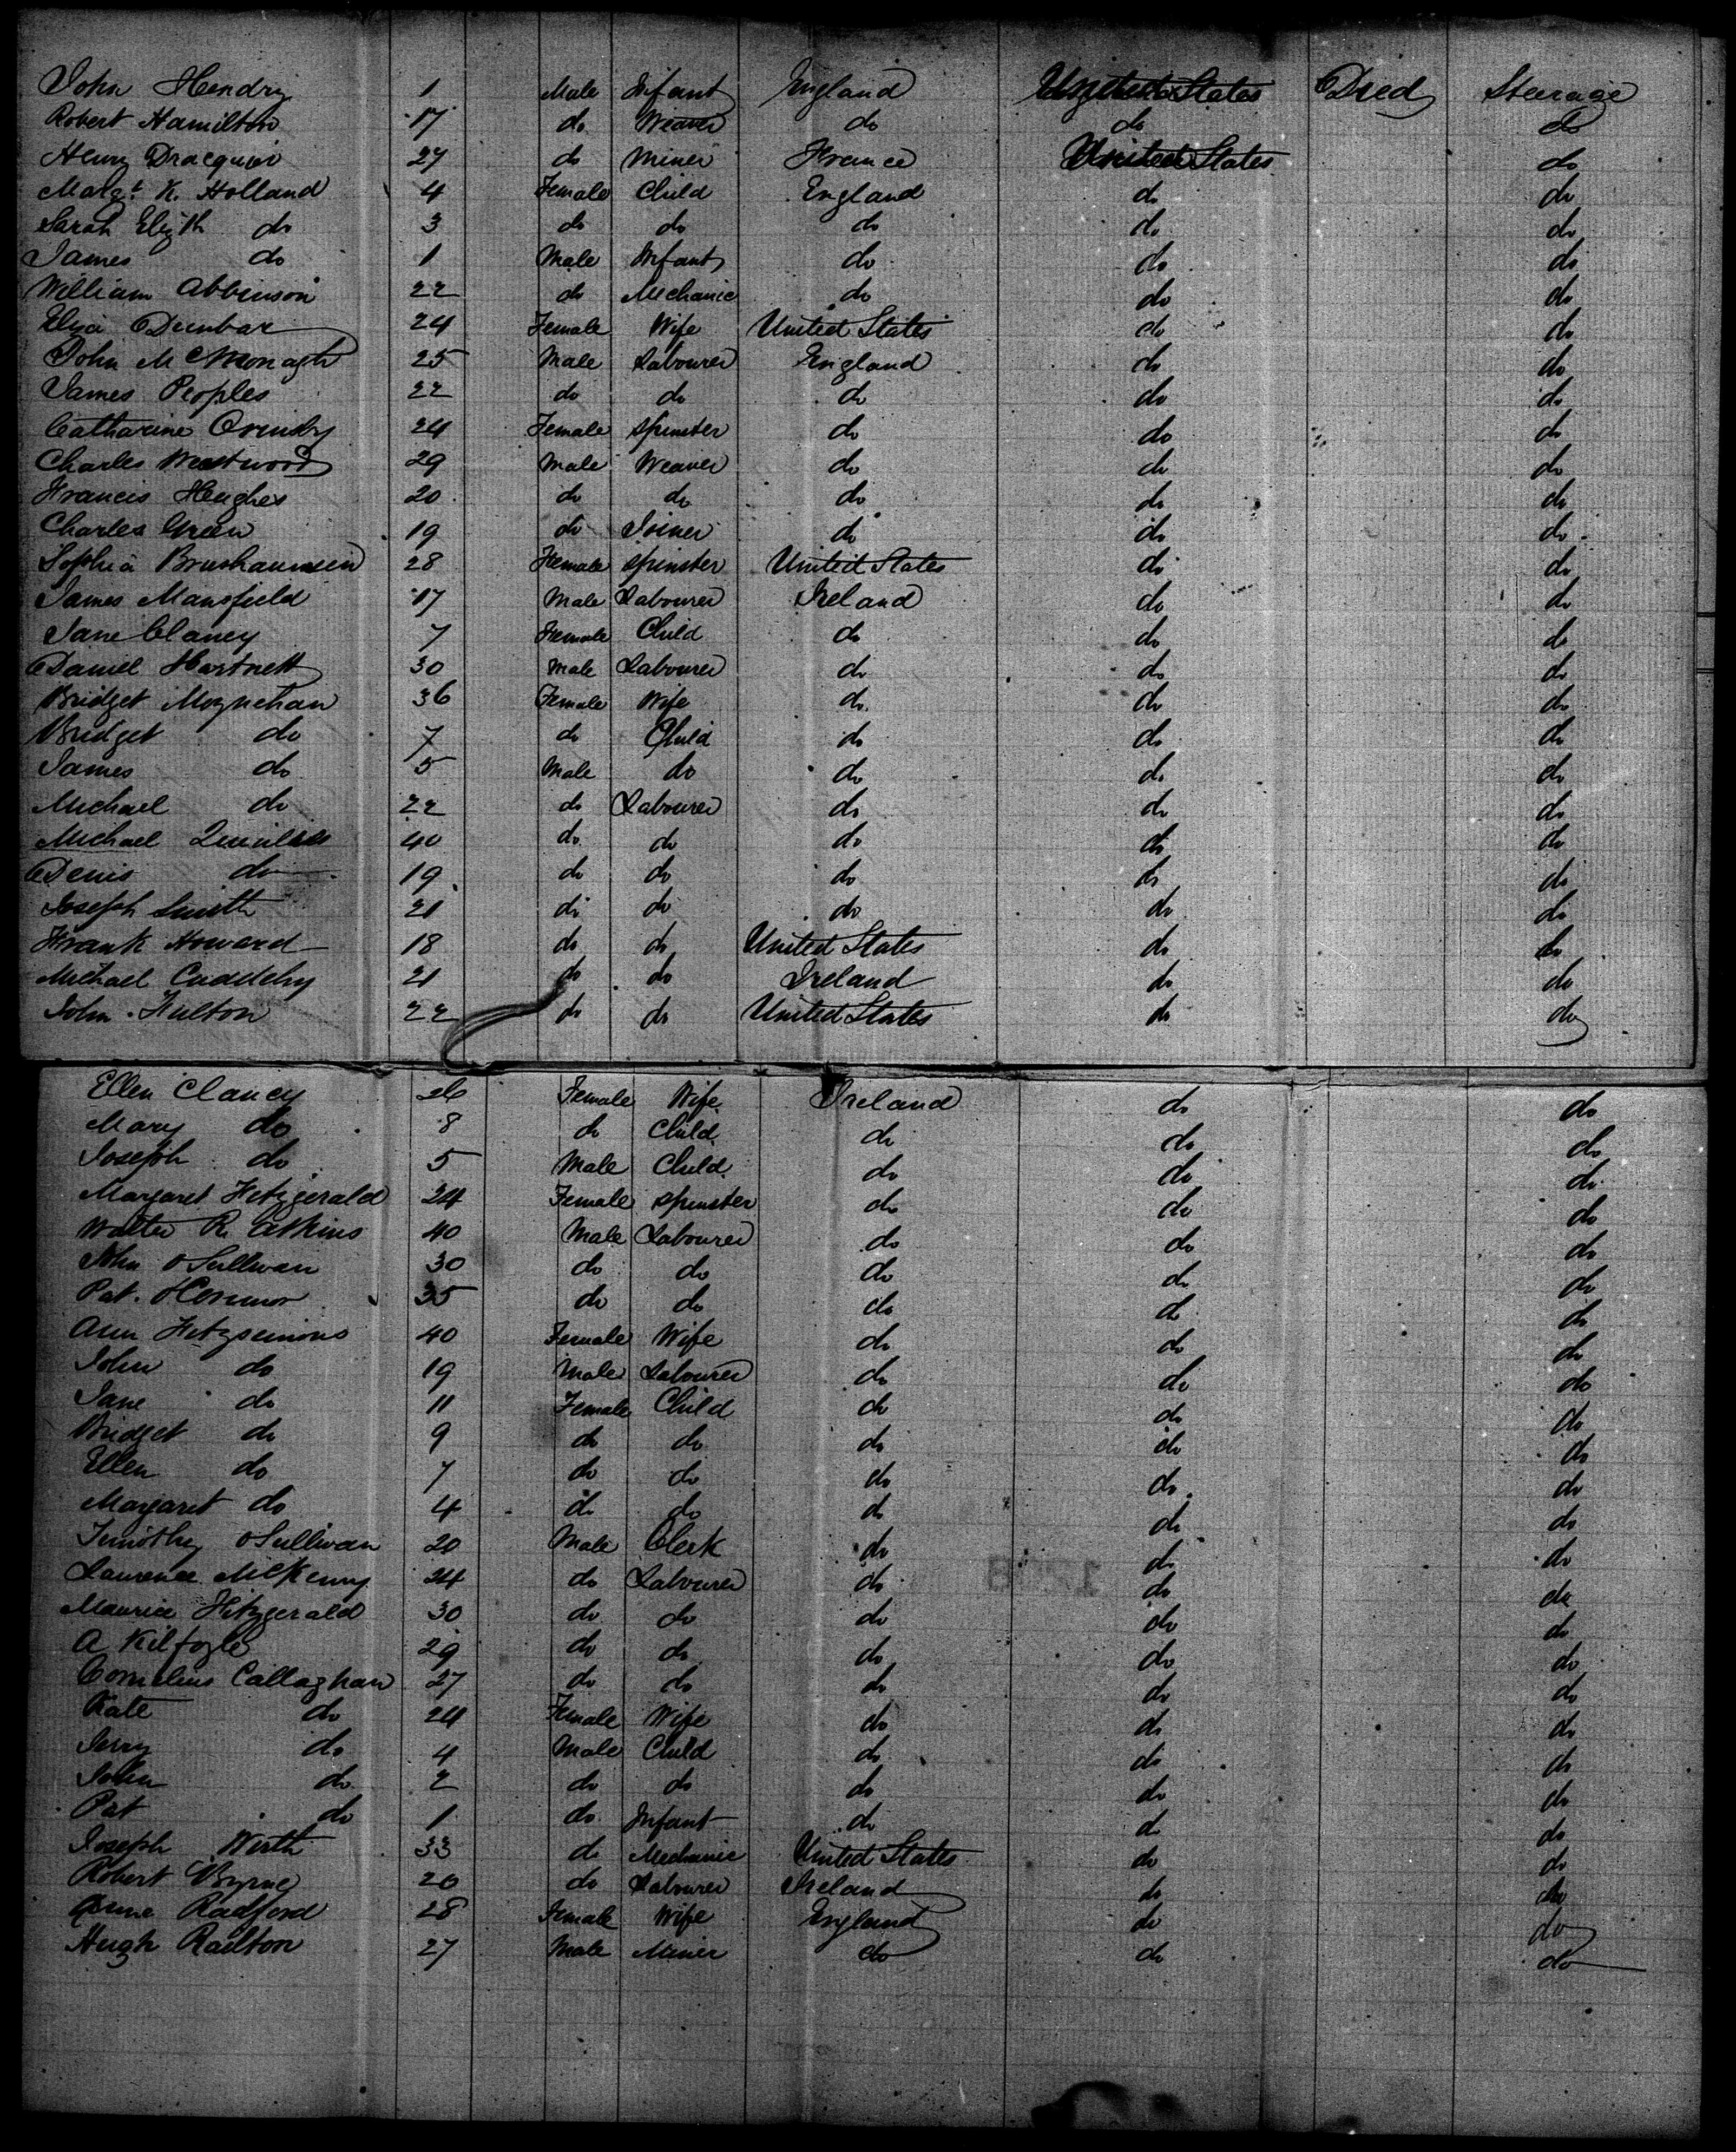 John Hendry 1 Male Infant England United States Died Steerage
Robert Hamilton 17 do Weaver do do do
Henry Dracquier 27 do Miner France United States do
Margt K. Holland 4 Female Child England do do
Sarah Elizth do 3 do do do do do
James do 1 Male Infant do do do
William Abbinson 22 do Mechanic do do do
Eliza Dunbar 24 Female Wife United States do do
John McMonagh 25 Male Labourer England do do
James Peoples 22 do do do do do
Catharine Ormsby 24 Female Spinster do do do
Charles Westwood 29 Male Weaver do do do
Francis Hughes 20 do do do do do
Charles Green 19 do Joiner do do do
Sophia 28 Female Spinster United States do do
James Mansfield 17 Male Labourer Ireland do do
Jane Clancy 7 Female Child do do do
Daniel Hartnett 30 Male Labourer do do do
Bridget Moynehan 36 Female Wife do do do
Bridget do 7 do Child do do do
James do 5 Male do do do do
Michael do 22 do Labourer do do do
Michael 40 do do do do do
Denis do 19 do do do do do
Joseph Smith 21 do do do do do
Frank Howard 18 do do United States do do
Michael Cuddehy 21 do do Ireland do do
John Fulton 22 do do United States do do
Ellen Clancy 26 Female Wife Ireland do do
Mary do 8 do Child do do do
Joseph do 5 Male Child do do do
Margaret Fitzgerald 24 Female Spinster do do do
Walter R. Atkins 40 Male Labourer do do do
John OSullivan 30 do do do do do
Pat. OConnor 35 do do do do do
Ann Fitzsimons 40 Female Wife do do do
John do 19 Male Labourer do do do
Jane do 11 Female Child do do do
Bridget do 9 do do do do do
Ellen do 7 do do do do do
Margaret do 4 do do do do do
Timothy OSullivan 20 Male Clerk do do do
Laurence McKenny 24 do Labourer do do do
Maurice Fitzgerald 30 do do do do do
A Kilfoyle 29 do do do do do
Cornelius Callaghan 27 do do do do do
Kate do 24 Female Wife do do do
Jerry do 4 Male Child do do do
John do 2 do do do do do
Pat do 1 do Infant do do do
Joseph Wirth 33 do Mechanic United States do do
Robert Byrne 20 do Labourer Ireland do do
Anne Radford 28 Female Wife England do do
Hugh Railton 27 Male Miner do do do